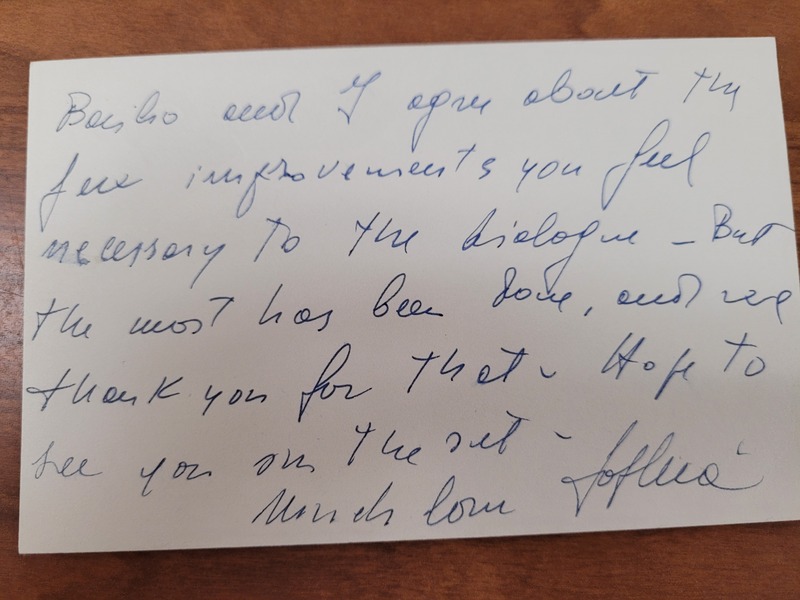 Basilio and I agree about the
few improvements you feel
necessary to the dialogue – But
the most has been done, and we
thank you for that – Hope to
see you on the set –
Much love